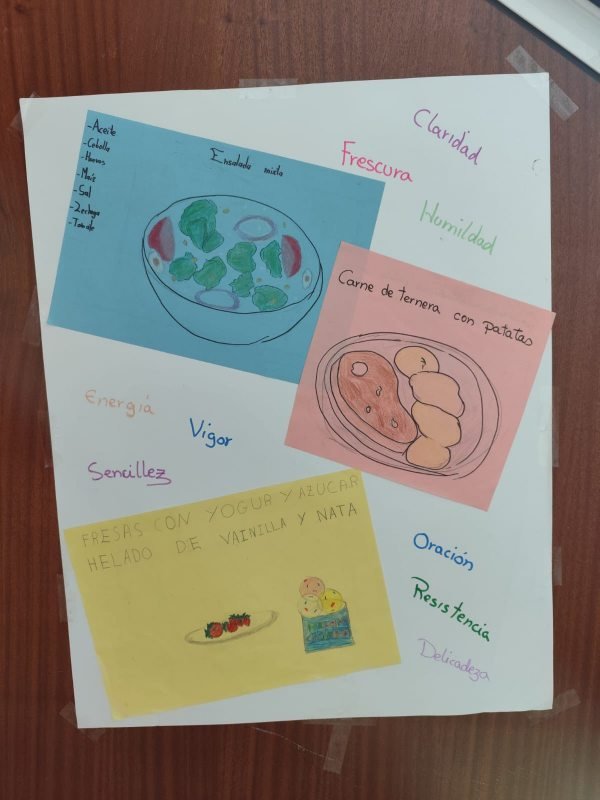 Claridad
Frescura
Humildad
-Aceite
-Cebolla
-Huevos
-Maíz
-Sal
-Lechuga
-Tomate
Ensalada mixta
Carne de ternera con patatas
Energía
Vigor
Sencillez
FRESAS CON YOGUR Y AZUCAR
HELADO DE VAINILLA Y NATA
Oración
Resistencia
Delicadeza